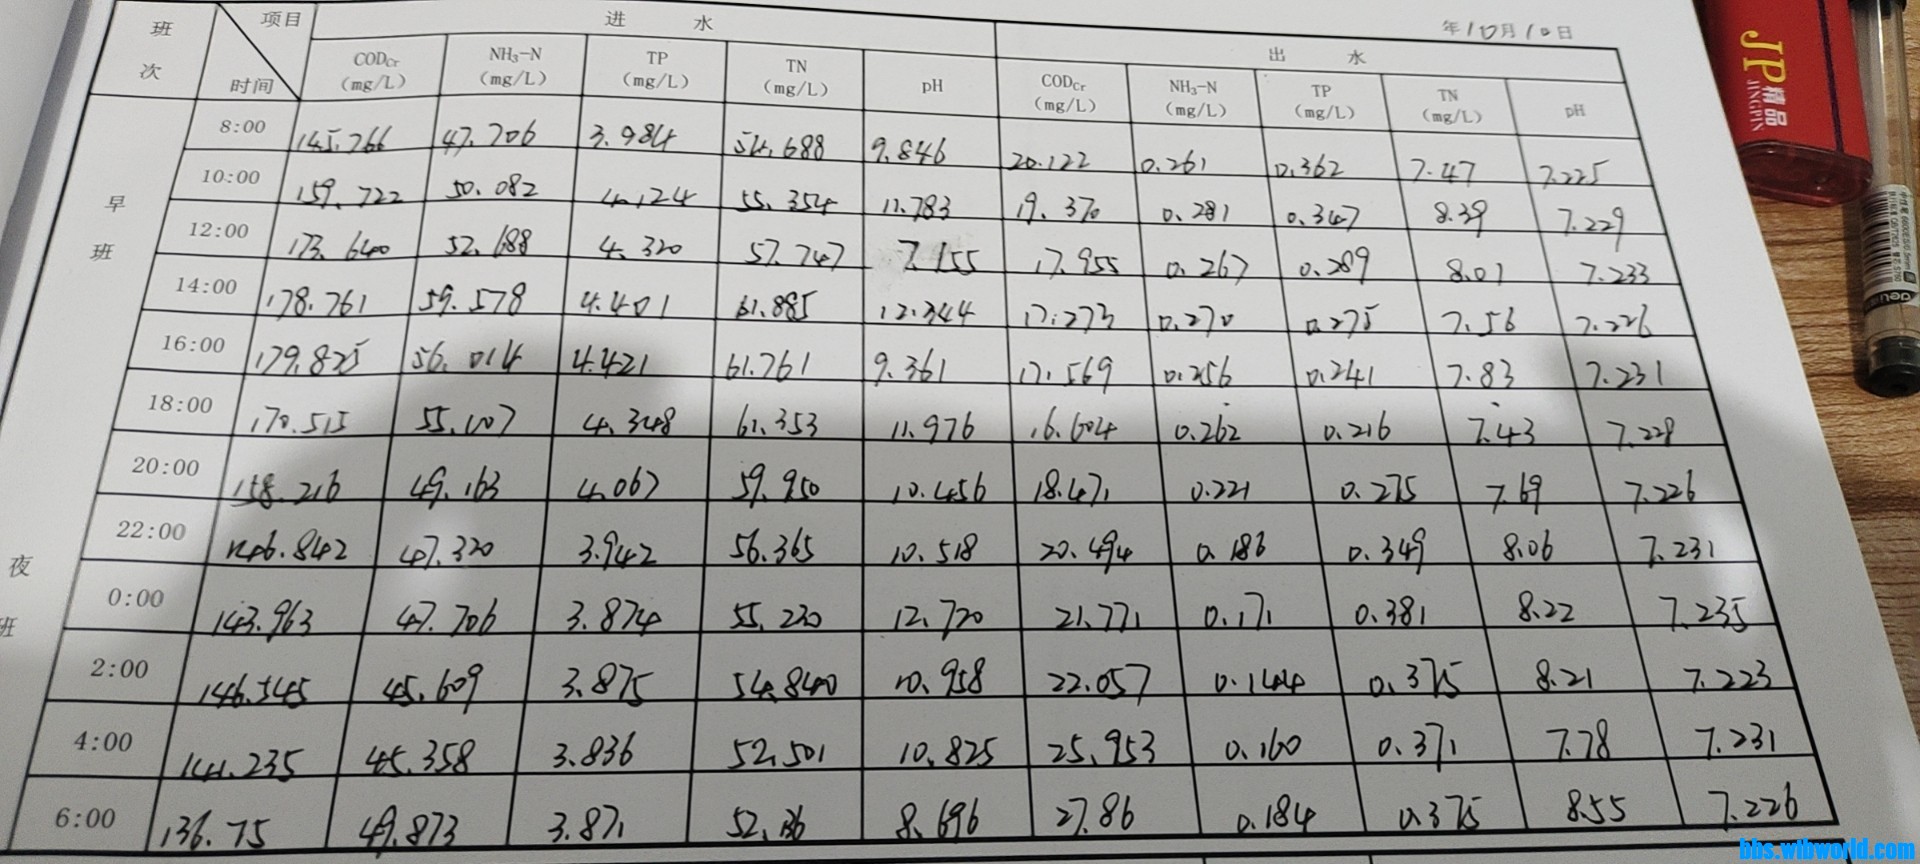 年10月10日
班次 项目 时间 进水 出水
CODCr (mg/L) NH₃-N (mg/L) TP (mg/L) TN (mg/L) pH CODCr (mg/L) NH₃-N (mg/L) TP (mg/L) TN (mg/L) pH
早班
8:00 145.766 47.706 3.984 54.688 9.846 20.122 0.261 0.362 7.47 7.225
10:00 159.722 50.082 4.124 55.354 11.783 19.370 0.281 0.347 8.39 7.229
12:00 173.640 52.688 4.320 57.747 7.155 17.955 0.267 0.289 8.01 7.233
14:00 178.761 59.578 4.401 61.885 12.344 17.273 0.270 0.275 7.56 7.226
16:00 179.825 56.014 4.421 61.761 9.361 17.569 0.256 0.241 7.83 7.231
18:00 170.515 55.107 4.348 61.353 11.976 16.604 0.262 0.216 7.43 7.228
夜班
20:00 158.216 49.163 4.067 59.950 10.456 18.471 0.221 0.275 7.69 7.226
22:00 146.842 47.320 3.942 56.365 10.518 20.494 0.186 0.349 8.06 7.231
0:00 143.963 47.706 3.874 55.230 12.720 21.771 0.171 0.381 8.22 7.235
2:00 146.545 45.609 3.875 54.840 10.958 22.057 0.144 0.375 8.21 7.223
4:00 141.235 45.358 3.836 52.501 10.825 25.953 0.160 0.371 7.78 7.231
6:00 136.75 49.873 3.871 8.696 27.86 0.184 0.375 8.55 7.226
JP精品
JINGPIN
deli
bbs.wibworld.com